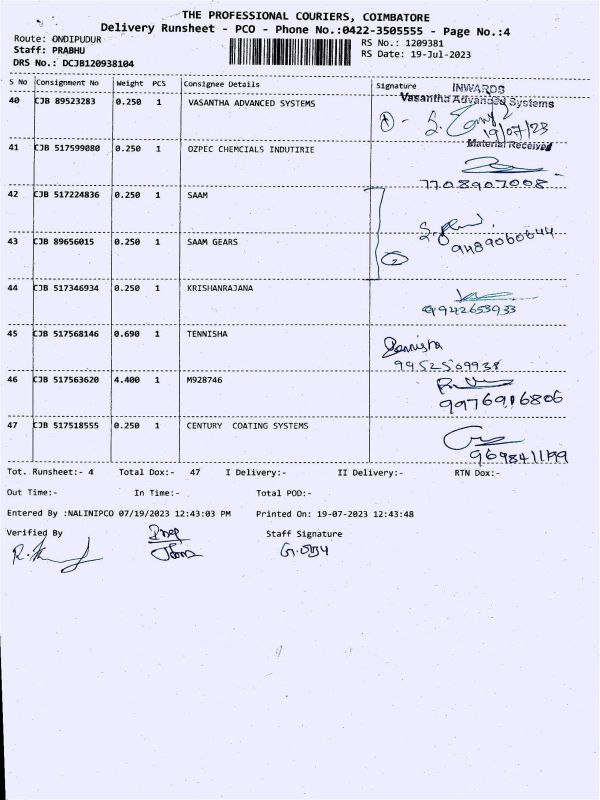 THE PROFESSIONAL COURIERS, COIMBATORE
Delivery Runsheet - PCO - Phone No.:0422-3505555 - Page No.:4
Route: ONDIPUDUR RS No.: 1209381
Staff: PRABHU RS Date: 19-Jul-2023
DRS No.: DCJB120938104
S No Consignment No Weight PCS Consignee Details Signature
INWARDS
40 CJB 89523283 0.250 1 VASANTHA ADVANCED SYSTEMS Vasantha Advanced Systems
19/07/23
41 CJB 517599080 0.250 1 OZPEC CHEMCIALS INDUTIRIE Material Received
7708907008
42 CJB 517224836 0.250 1 SAAM
43 CJB 89656015 0.250 1 SAAM GEARS 9489060644
2
44 CJB 517346934 0.250 1 KRISHANRAJANA
9942653933
45 CJB 517568146 0.690 1 TENNISHA Tennisha
9952509938
46 CJB 517563620 4.400 1 M928746
9976916806
47 CJB 517518555 0.250 1 CENTURY COATING SYSTEMS
Tot. Runsheet:- 4 Total Dox:- 47 I Delivery:- II Delivery:- RTN Dox:-
Out Time:- In Time:- Total POD:-
Entered By :NALINIPCO 07/19/2023 12:43:03 PM Printed On: 19-07-2023 12:43:48
Verified By Staff Signature